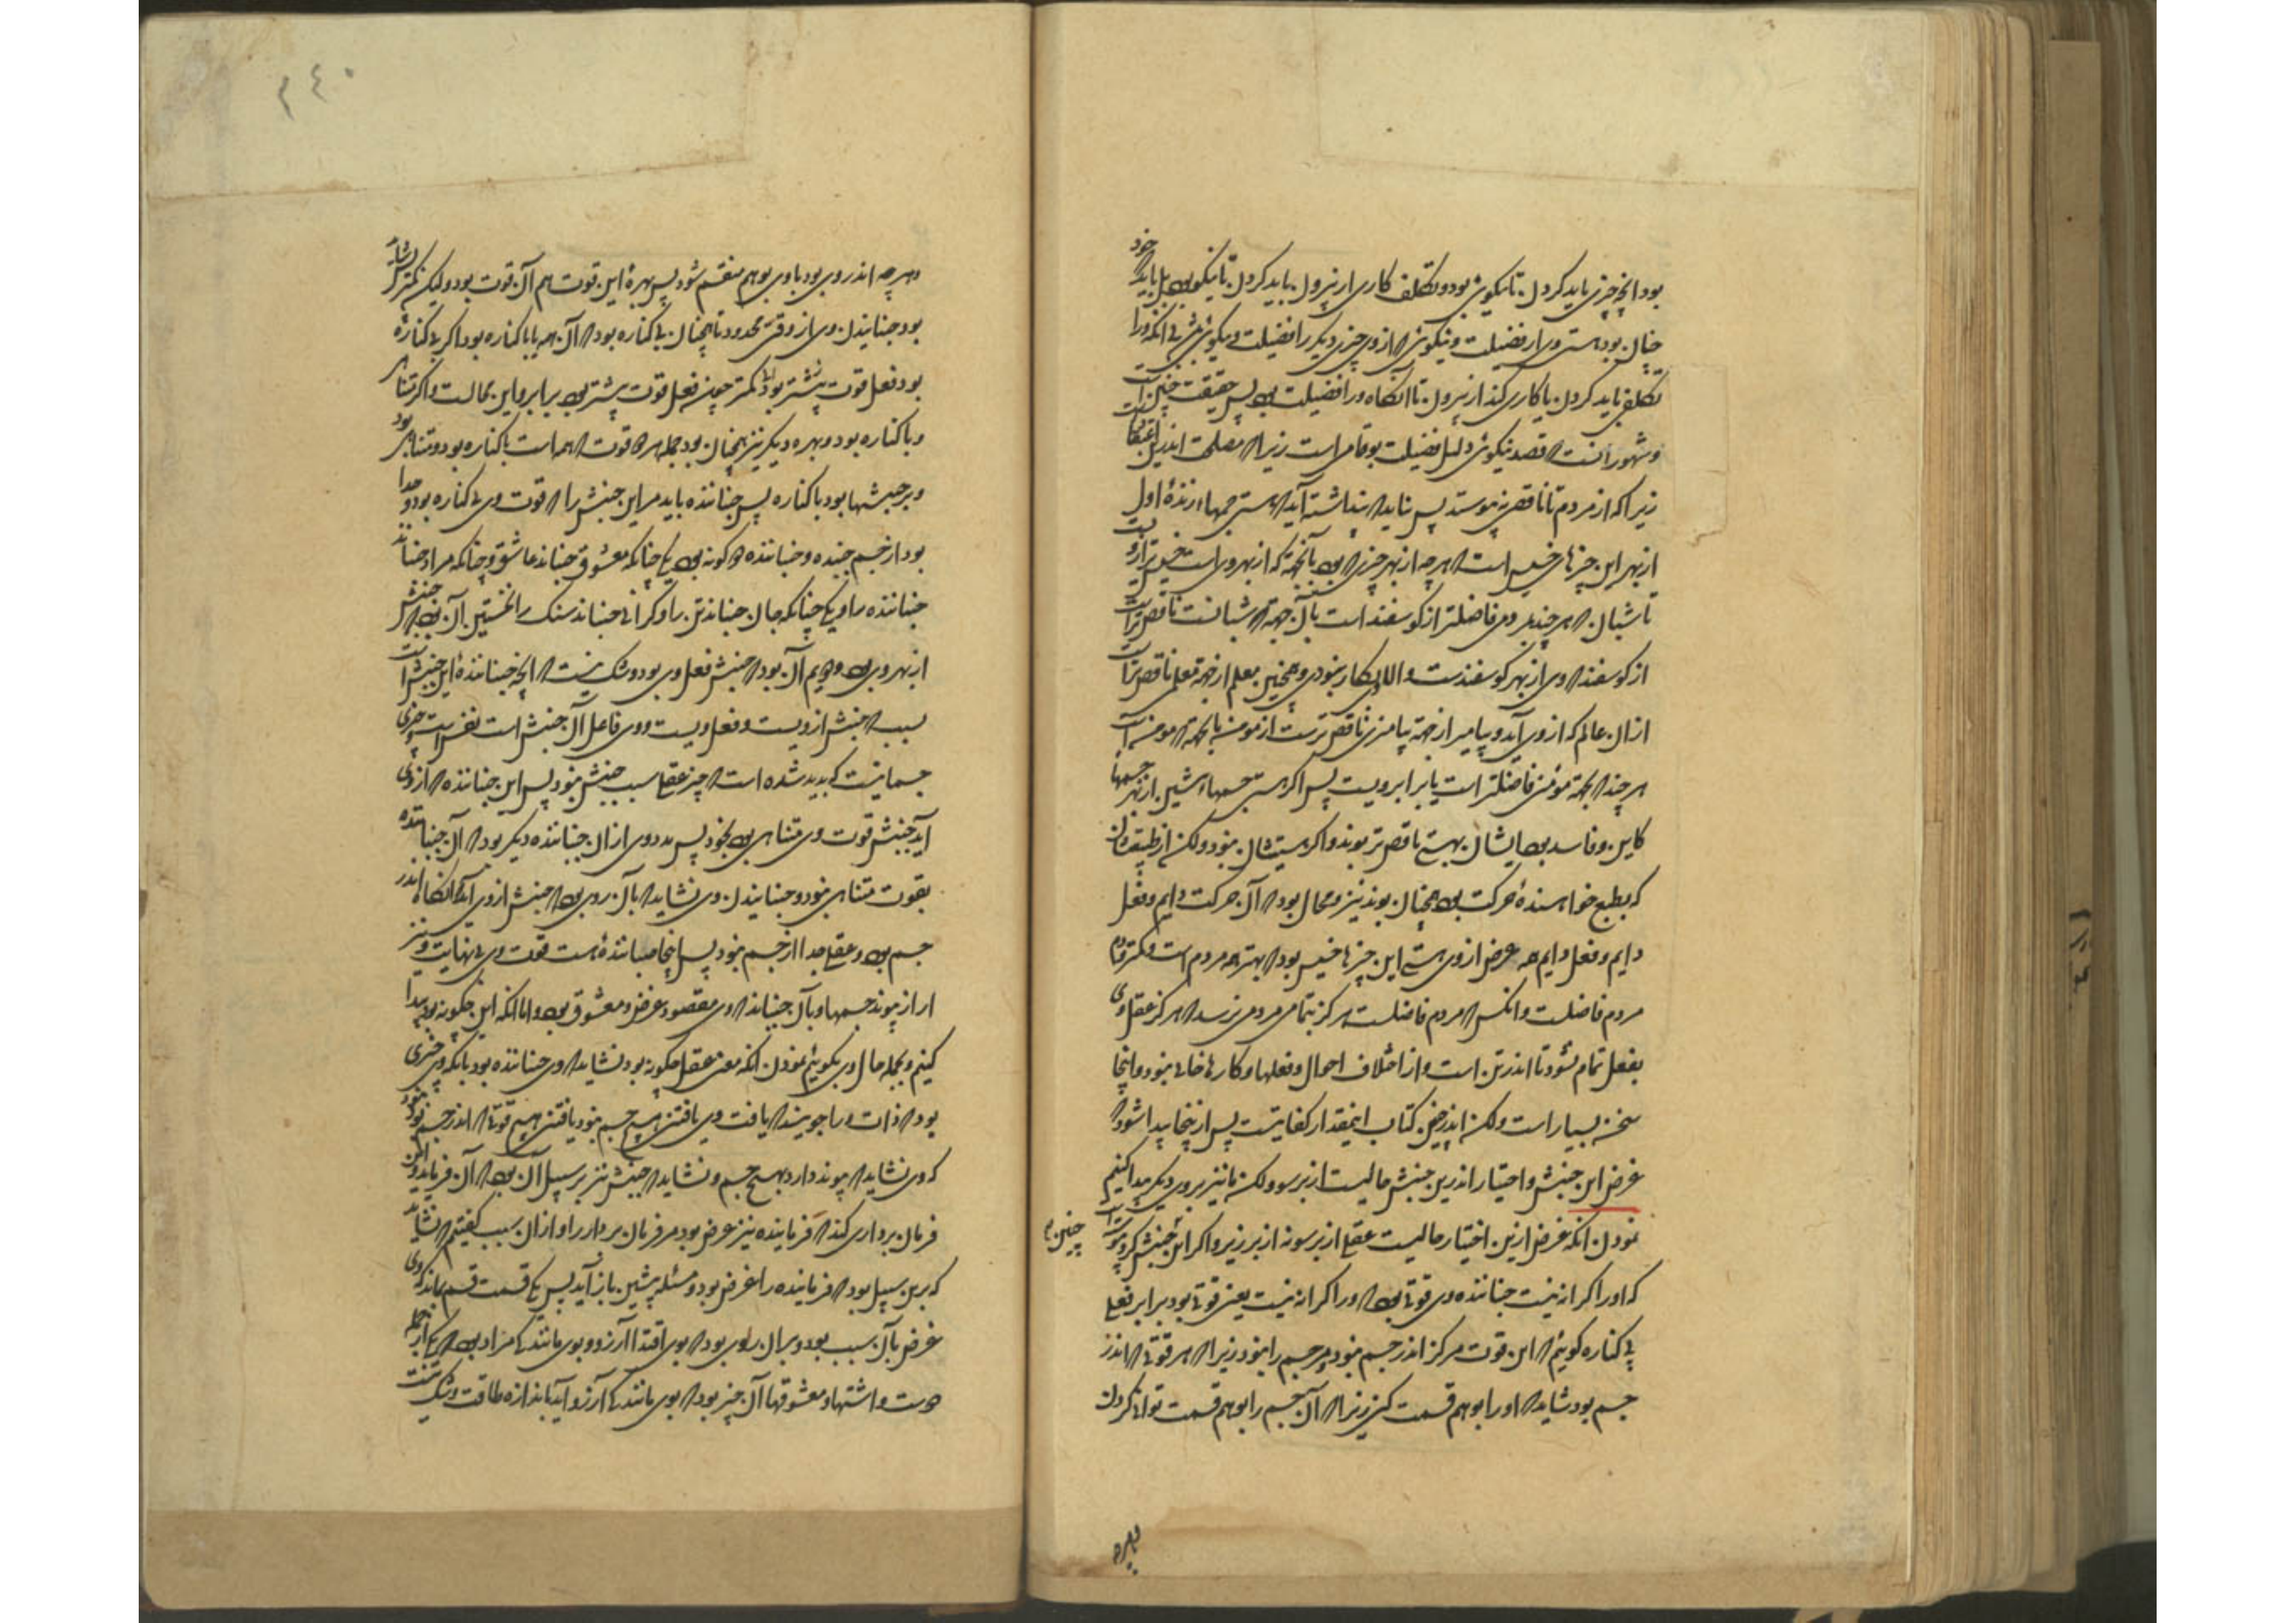 بود انچه چیزی باید کردن تا نیکوی بود و تکلف کاری از بیرون باید کردن تا نیکو بود بل باید که خود
چنان بود هستی ورا از فضیلت و نیکوی که از وی چیزی دیگر را فضیلت و نیکوی بی انکه ورا
تکلف باید کردن یا کاری کند از بیرون تا انگاه ورا فضیلت بود پس حقیقت چنین است
و مشهور انست که قصد نیکوی دلیل فضیلت بود عامی است زیرا که مصلحت اندرین اعتقاد است
زیرا که از مردم تا ناقص نه پیوستد پس نباید که پنداشته آید که هستی جسمها ارزنده اول
از بهر این چیزهای خسیس است که هرچه از بهر چیزی بود بآنجهة که از بهر وی است خسیس‌تر از وی است
تا شبان که هر چند بمردمی فاضلتر از کوسفند است بآن جهة که شبانست ناقص‌تر است
از کوسفند که وی از بهر کوسفندست و الا وی بکار نبودی و همچنین معلم از جهة معلمی ناقص‌تر است
از آن عالم که از وی آید و پیامبر از جهة پیامبری ناقص‌ترست از مومن بآنجهة که مومن است
هر چند که بجهة مومنی فاضلتر است یا برابر ویست پس اکر هستی جسمهاء پیشین از بهر جسمهاء
کاین و فاسد بود ایشان بهستی ناقص‌تر بوند و اکر هستیشان نبود ولکن از طبیعتشان
که بطبع خواهنده حرکت بود همچنان بوند نیز و محال بود که آن حرکت دایم و فعل
دایم و فعل دایم که غرض از وی هستی این چیزها خسیس بود که بهترهء مردم است و کمتر تمام
مردم فاضلست و انکس که مردم فاضلست هرکز بتمامی مردمی نرسد که هرکز عقل وی
بفعل تمام نشود تا اندر تن است و از اختلاف احوال و فعلها و کارها خالی نبود و اینجا
سخن بسیار است ولکن اندرین کتاب اینمقدار کفایتست پس از اینجا پیدا شود که
غرض این جنبش و اختیار اندرین جنبش حالیست از برسو ولکن ما نیز بروی دیکر پیدا کنیم
نمودن انکه غرض ازین اختیار حالیست عقلی از برسو نه از برزیر و اکر این جنبش کرد پیوسته است
چنین م
که اورا کرانه نیست جنباننده وی قوتی بود که ورا کرانه نیست یعنی قوتی بود برابر فعل
بی کناره کوییم که این قوت هرکز اندر جسم نبود و مر جسم را نبود زیرا که هر قوتی که اندر
جسم بود شاید که اورا بوهم قسمت کنی زیرا که آن جسم را بوهم قسمت توان کردن
و هرچه
و هرچه اندر وی بود با وی بوهم منقسم شود پس بهرهٔ این قوت هم آن قوت بود ولیکن کمتر پس نشاید
بود جنبانیدن وی از وقتی محدود تا همچنان بی کناره بود که آن همه یا با کناره بود اکر بی کناره
بود فعل قوت بیشتر بود و کمتر چون فعل قوت بیشتر بود برابر و این محالست و اکر متناهی
و با کناره بود و بهره دیکر نیز همچنان بود جمله هر دو قوت که همه است با کناره بود و متناهی بود
و بر جنبشها بود با کناره پس جنباننده باید مر این جنبش را که قوت وی بی کناره بود و جدا
بود از جسم جنبده و جنباننده دو کونه بود یکی چنانکه معشوق جنباند عاشق و چنانکه مراد جنباند
جنباننده را و یکی چنانکه جان جنباند تن را و کرانی جنباند سنک را نخستین آن بود که جنبش
از بهر وی بود و دویم آن بود که جنبش فعل وی بود و شک نیست که انچه جنباننده این جنبش است
بسبب که جنبش از ویست و فعل ویست و وی فاعل آن جنبش است نفس است و چیزی
جسمانیست که پدید شده است که چیز عقلی سبب جنبش نبود پس این جنباننده که از وی
آید جنبش قوت وی متناهی بود بخود پس مدد وی از آن جنباننده دیکر بود که آن جنباننده
بقوت متناهی نبود و جنبانیدن وی نشاید که بآن روی بود که جنبش از وی آید که انگاه اندر
جسم بود و عقلی جدا از جسم نبود پس اینجا جنبانندهٔ هست قوت وی بی نهایت و نیز
از پیوند جسمها و بآن جنباند که وی مقصود و غرض و معشوق بود و اما انکه این چکونه بود پیدا
کنیم و بجمله حال وی بکوییم نمودن انکه معنی عقل چکونه بود نشاید که وی جنباننده بود بانکه وی چیزی
بود که ذات ورا جویند که یافت وی یافتن هیچ جسم نبود یافتن هیچ قوتی که اندر جسم بود نبود
که وی نشاید که پیوند دارد بهیچ جسم و نشاید که جنبش نیز بر سبیل آن بود که آن فرماید و این
فرمان برداری کند که فرماینده نیز غرض بود مر فرمان بردار را و از آن سبب کفتیم که نشاید
که برین سبیل بود که فرماینده را غرض بود و مسئله پیشین باز آید پس یک قسمت قسم ماند که وی
غرض بآن سبب بود و بران روی بود که بوی اقتدا آرزو و بوی مانندگی مراد بود که یکی از جمله
دوست و اشتها و معشوقها آن چیز بود که بوی مانندگی آرزو آید باندازه طاقت و شک نیست
۲۴۰